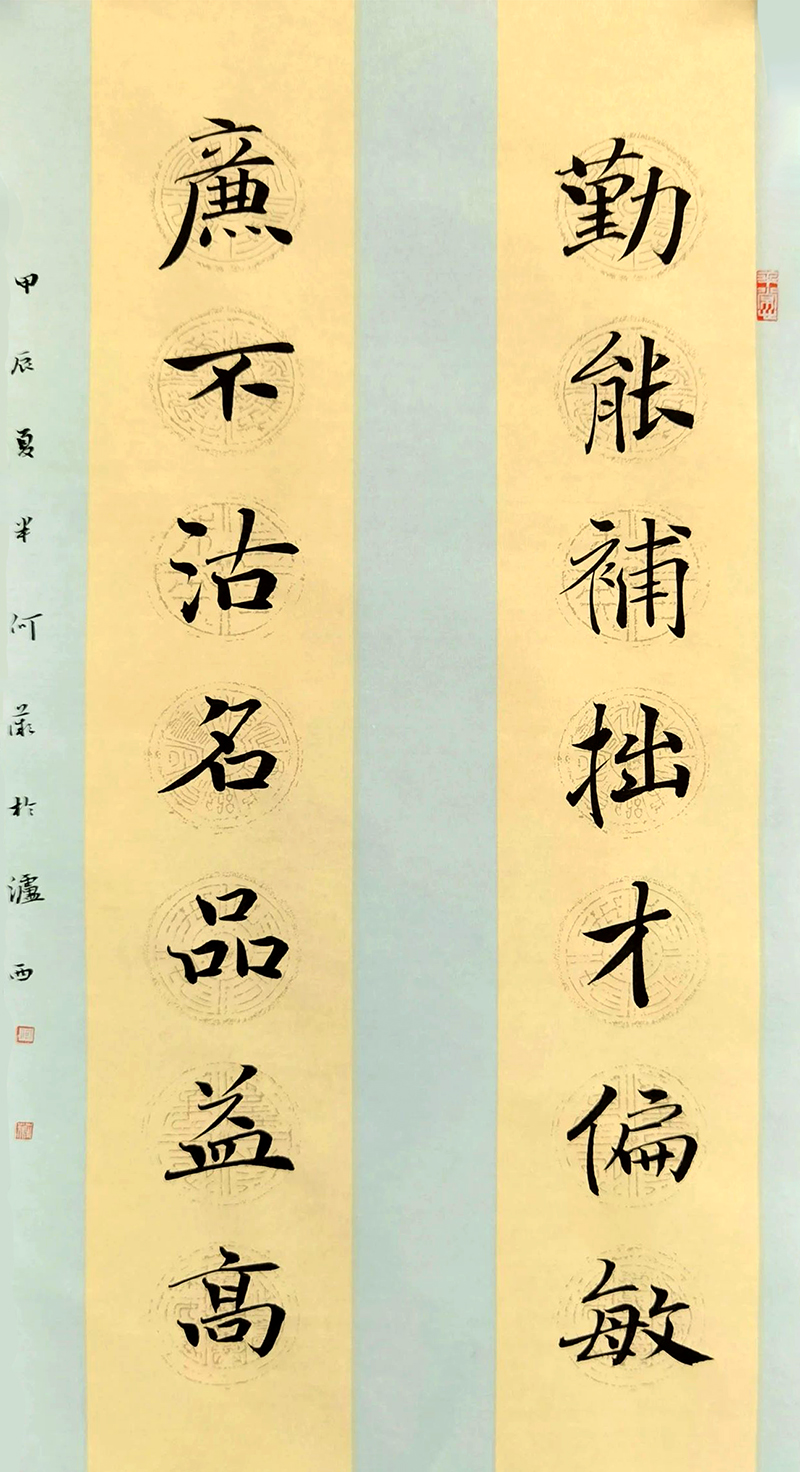 勤能補拙才偏敏
廉不沽名品益高
甲辰夏半何葆於瀘西